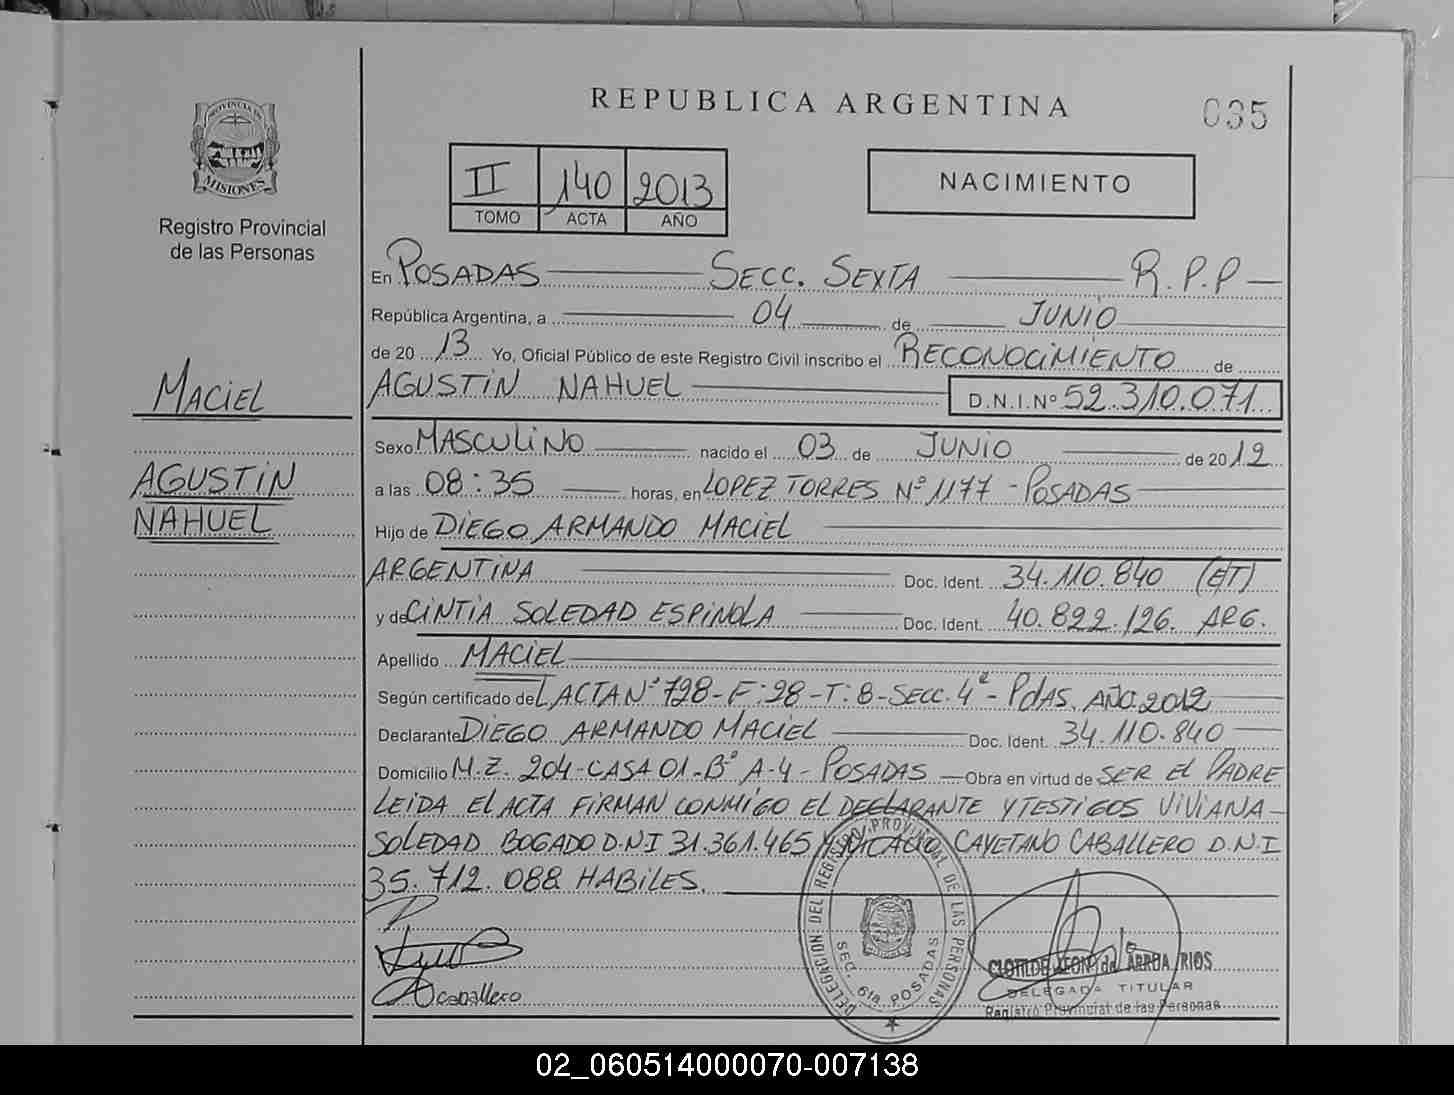 REPUBLICA ARGENTINA
035
PROVINCIA DE
MISIONES
Registro Provincial
de las Personas
II 140 2013
TOMO ACTA AÑO
NACIMIENTO
En POSADAS SECC. SEXTA R.P.P
República Argentina, a 04 de JUNIO
de 2013 Yo, Oficial Público de este Registro Civil inscribo el RECONOCIMIENTO de
MACIEL
AGUSTIN NAHUEL D.N.I.Nº 52.310.071
Sexo MASCULINO nacido el 03 de JUNIO de 2012
AGUSTIN
NAHUEL
a las 08:35 horas, en LOPEZ TORRES Nº 1177 - POSADAS
Hijo de DIEGO ARMANDO MACIEL
ARGENTINA Doc. Ident. 34.110.840 (E/T)
y de CINTIA SOLEDAD ESPINOLA Doc. Ident. 40.822.126. ARG.
Apellido MACIEL
Según certificado del ACTA Nº 728-F:28-T:8-SECC.4ª-Pdas. AÑO.2012
Declarante DIEGO ARMANDO MACIEL Doc. Ident. 34.110.840
Domicilio M.Z. 204-CASA 01-Bº A-4-POSADAS Obra en virtud de SER EL PADRE
LEIDA EL ACTA FIRMAN CONMIGO EL DECLARANTE Y TESTIGOS VIVIANA
SOLEDAD BOGADO D.N.I 31.361.465 CAYETANO CABALLERO D.N.I
35.712.088 HABILES.
caballero
DELEGACION DEL REGISTRO PROVINCIAL DE LAS PERSONAS
SEC. 6ta. POSADAS
CLOTILDE LEON de ARRUA RIOS
DELEGADA TITULAR
Registro Provincial de las Personas
02_060514000070-007138